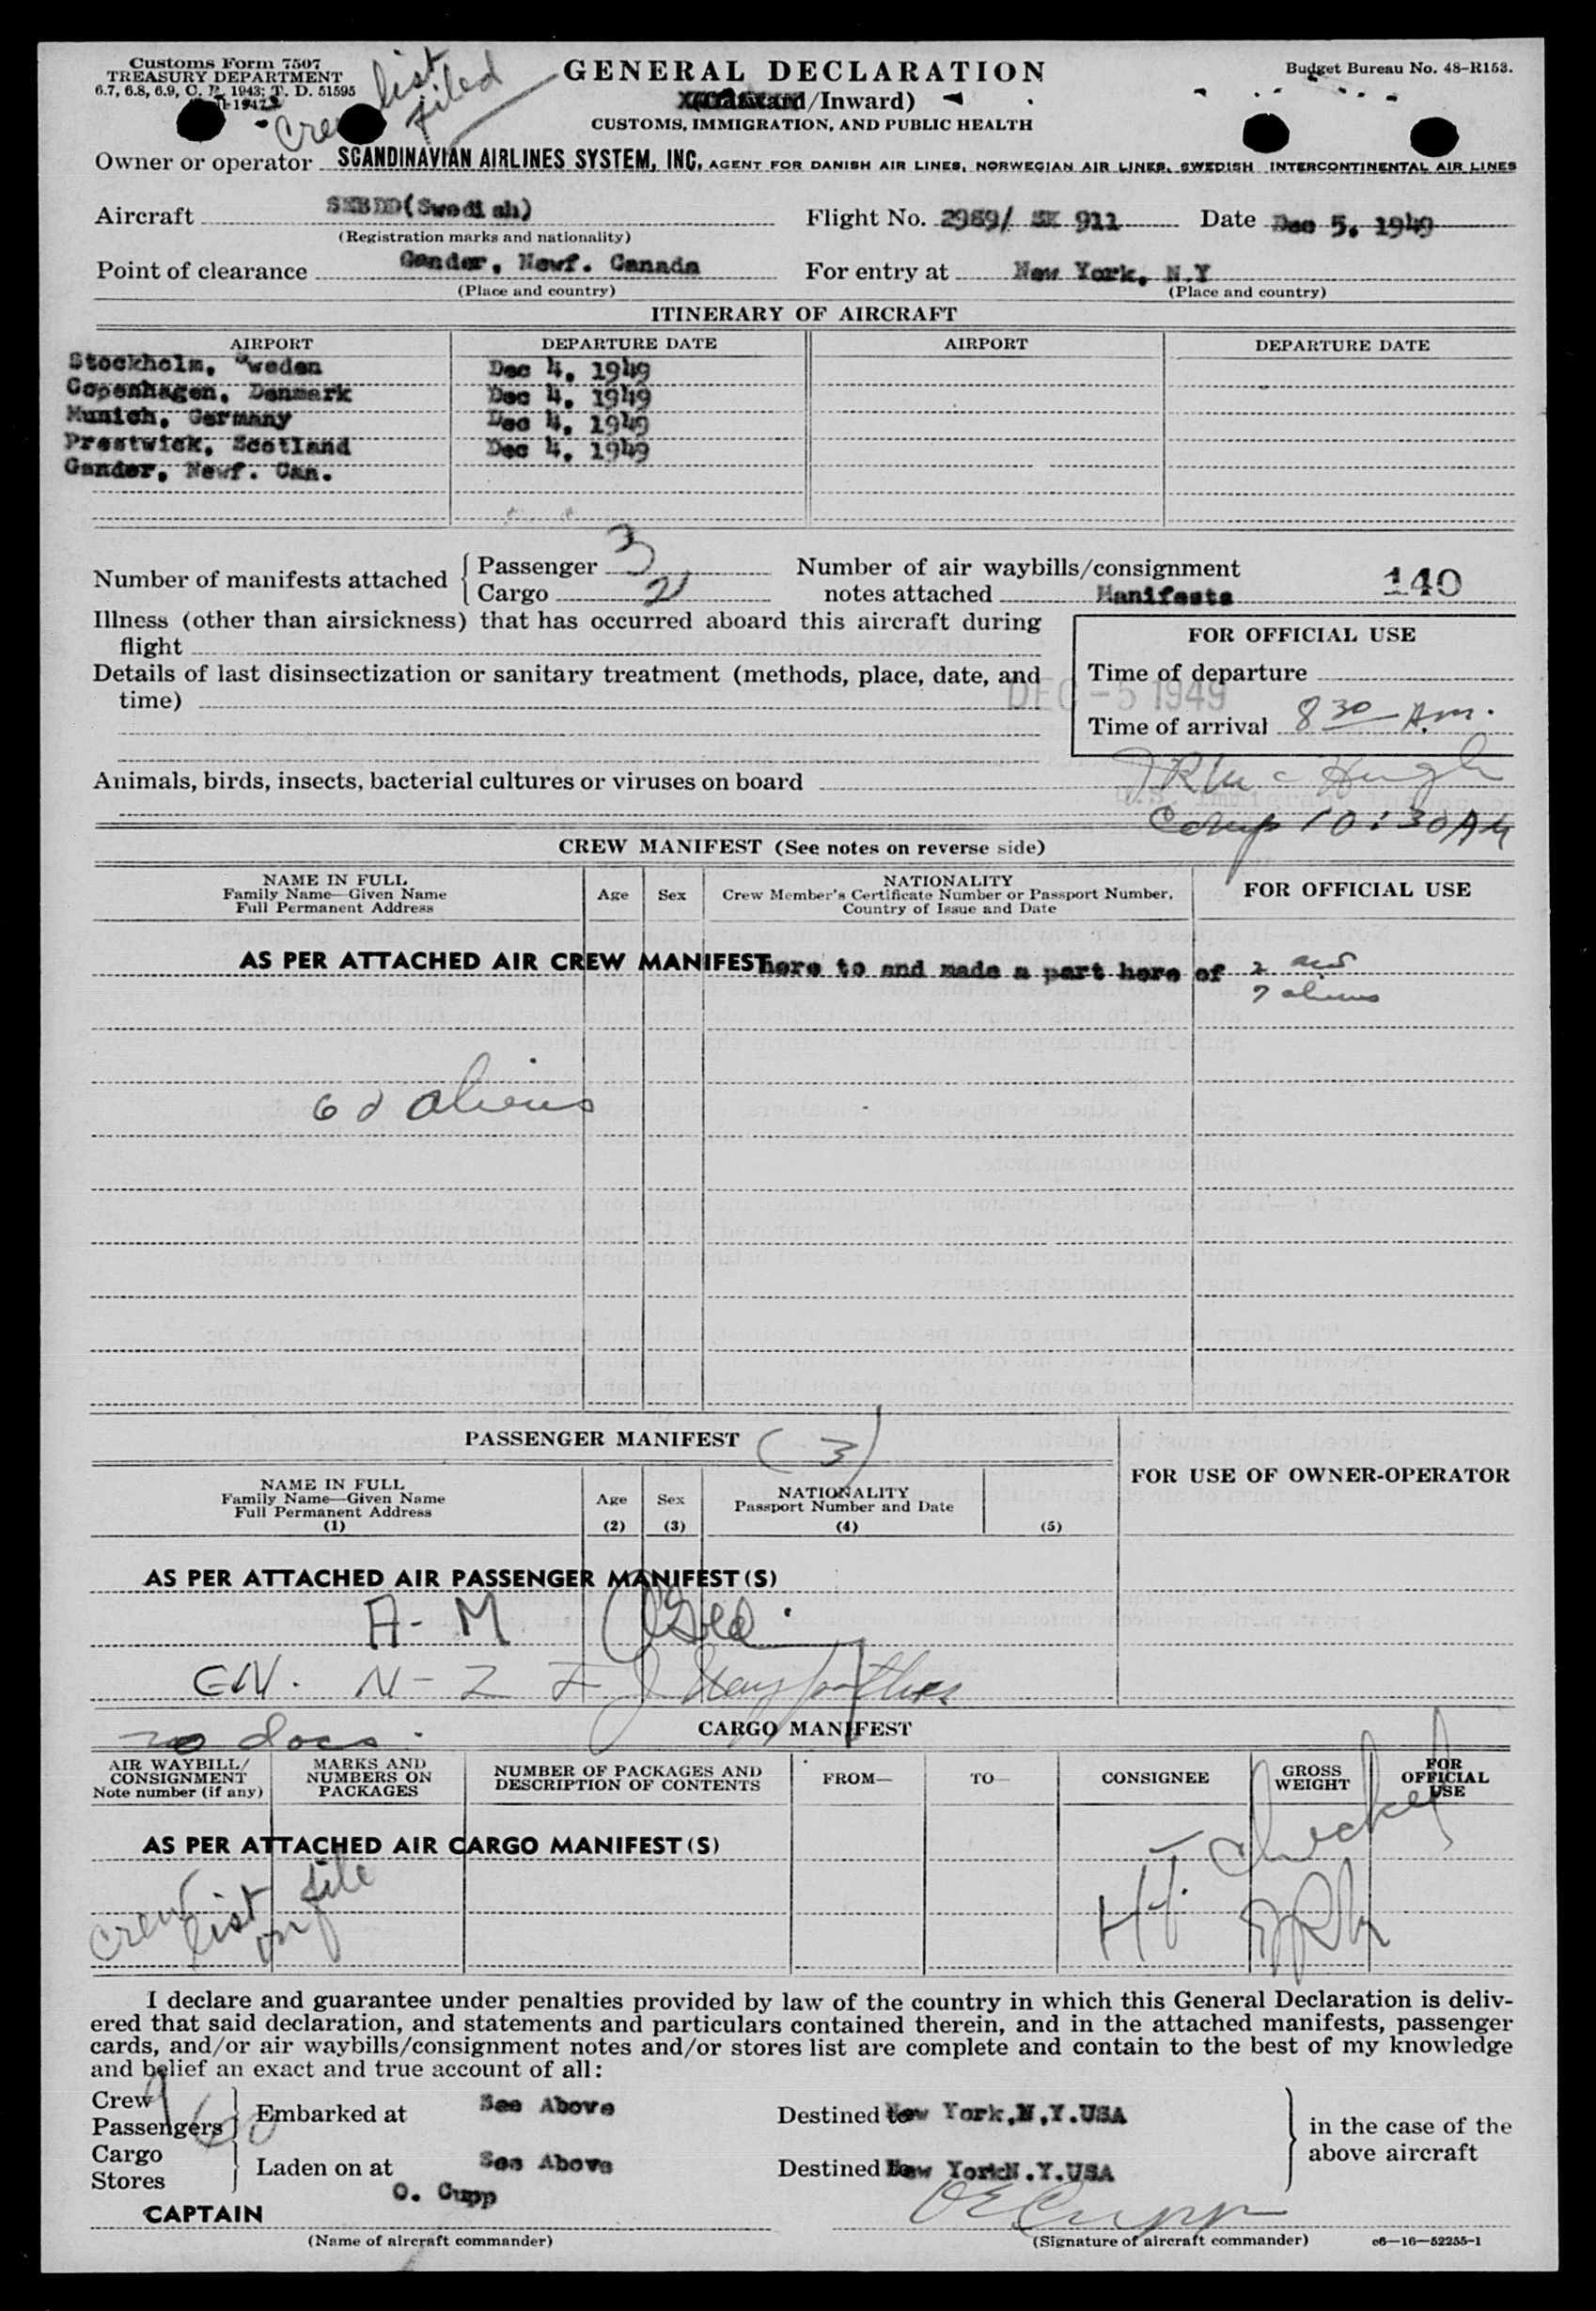 Customs Form 7507
TREASURY DEPARTMENT
6.7, 6.8, 6.9, C. R. 1943; T. D. 51595
Crew list filed
GENERAL DECLARATION
(Outward/Inward)
CUSTOMS, IMMIGRATION, AND PUBLIC HEALTH
Budget Bureau No. 48-R153.
Owner or operator SCANDINAVIAN AIRLINES SYSTEM, INC. AGENT FOR DANISH AIR LINES, NORWEGIAN AIR LINES, SWEDISH INTERCONTINENTAL AIR LINES
Aircraft SEBDD(Swedish) Flight No. 2989/ SK 911 Date Dec 5, 1949
(Registration marks and nationality)
Point of clearance Gander, Newf. Canada For entry at New York, N.Y
(Place and country) (Place and country)
ITINERARY OF AIRCRAFT
AIRPORT DEPARTURE DATE AIRPORT DEPARTURE DATE
Stockholm, Sweden Dec 4, 1949
Copenhagen, Denmark Dec 4, 1949
Munich, Germany Dec 4, 1949
Prestwick, Scotland Dec 4, 1949
Gander, Newf. Can.
Number of manifests attached { Passenger 3
Cargo 2
Number of air waybills/consignment
notes attached Manifests 140
Illness (other than airsickness) that has occurred aboard this aircraft during
flight
Details of last disinsectization or sanitary treatment (methods, place, date, and
time)
FOR OFFICIAL USE
Time of departure
DEC -5 1949
Time of arrival 8 30 A.m.
Animals, birds, insects, bacterial cultures or viruses on board
J R McHugh
Comp 10:30 AM
CREW MANIFEST (See notes on reverse side)
NAME IN FULL
Family Name—Given Name
Full Permanent Address
Age Sex
NATIONALITY
Crew Member's Certificate Number or Passport Number,
Country of Issue and Date
FOR OFFICIAL USE
AS PER ATTACHED AIR CREW MANIFEST here to and made a part here of 2
7 aliens
aliens
PASSENGER MANIFEST (3)
NAME IN FULL
Family Name—Given Name
Full Permanent Address
(1)
Age
(2)
Sex
(3)
NATIONALITY
Passport Number and Date
(4) (5)
FOR USE OF OWNER-OPERATOR
AS PER ATTACHED AIR PASSENGER MANIFEST(S)
A - M
N - Z
no docs.
CARGO MANIFEST
AIR WAYBILL/
CONSIGNMENT
Note number (if any)
MARKS AND
NUMBERS ON
PACKAGES
NUMBER OF PACKAGES AND
DESCRIPTION OF CONTENTS
FROM— TO— CONSIGNEE
GROSS
WEIGHT
FOR
OFFICIAL
USE
AS PER ATTACHED AIR CARGO MANIFEST(S)
Checked
crew list on file
I declare and guarantee under penalties provided by law of the country in which this General Declaration is deliv-
ered that said declaration, and statements and particulars contained therein, and in the attached manifests, passenger
cards, and/or air waybills/consignment notes and/or stores list are complete and contain to the best of my knowledge
and belief an exact and true account of all:
Crew 9
Passengers 60
Embarked at See Above Destined to New York,N,Y.USA
Cargo
Stores
Laden on at See Above Destined New YorkN.Y.USA
in the case of the
above aircraft
O. Cupp
CAPTAIN
OE Cupp
(Name of aircraft commander) (Signature of aircraft commander) c6—16—52255-1